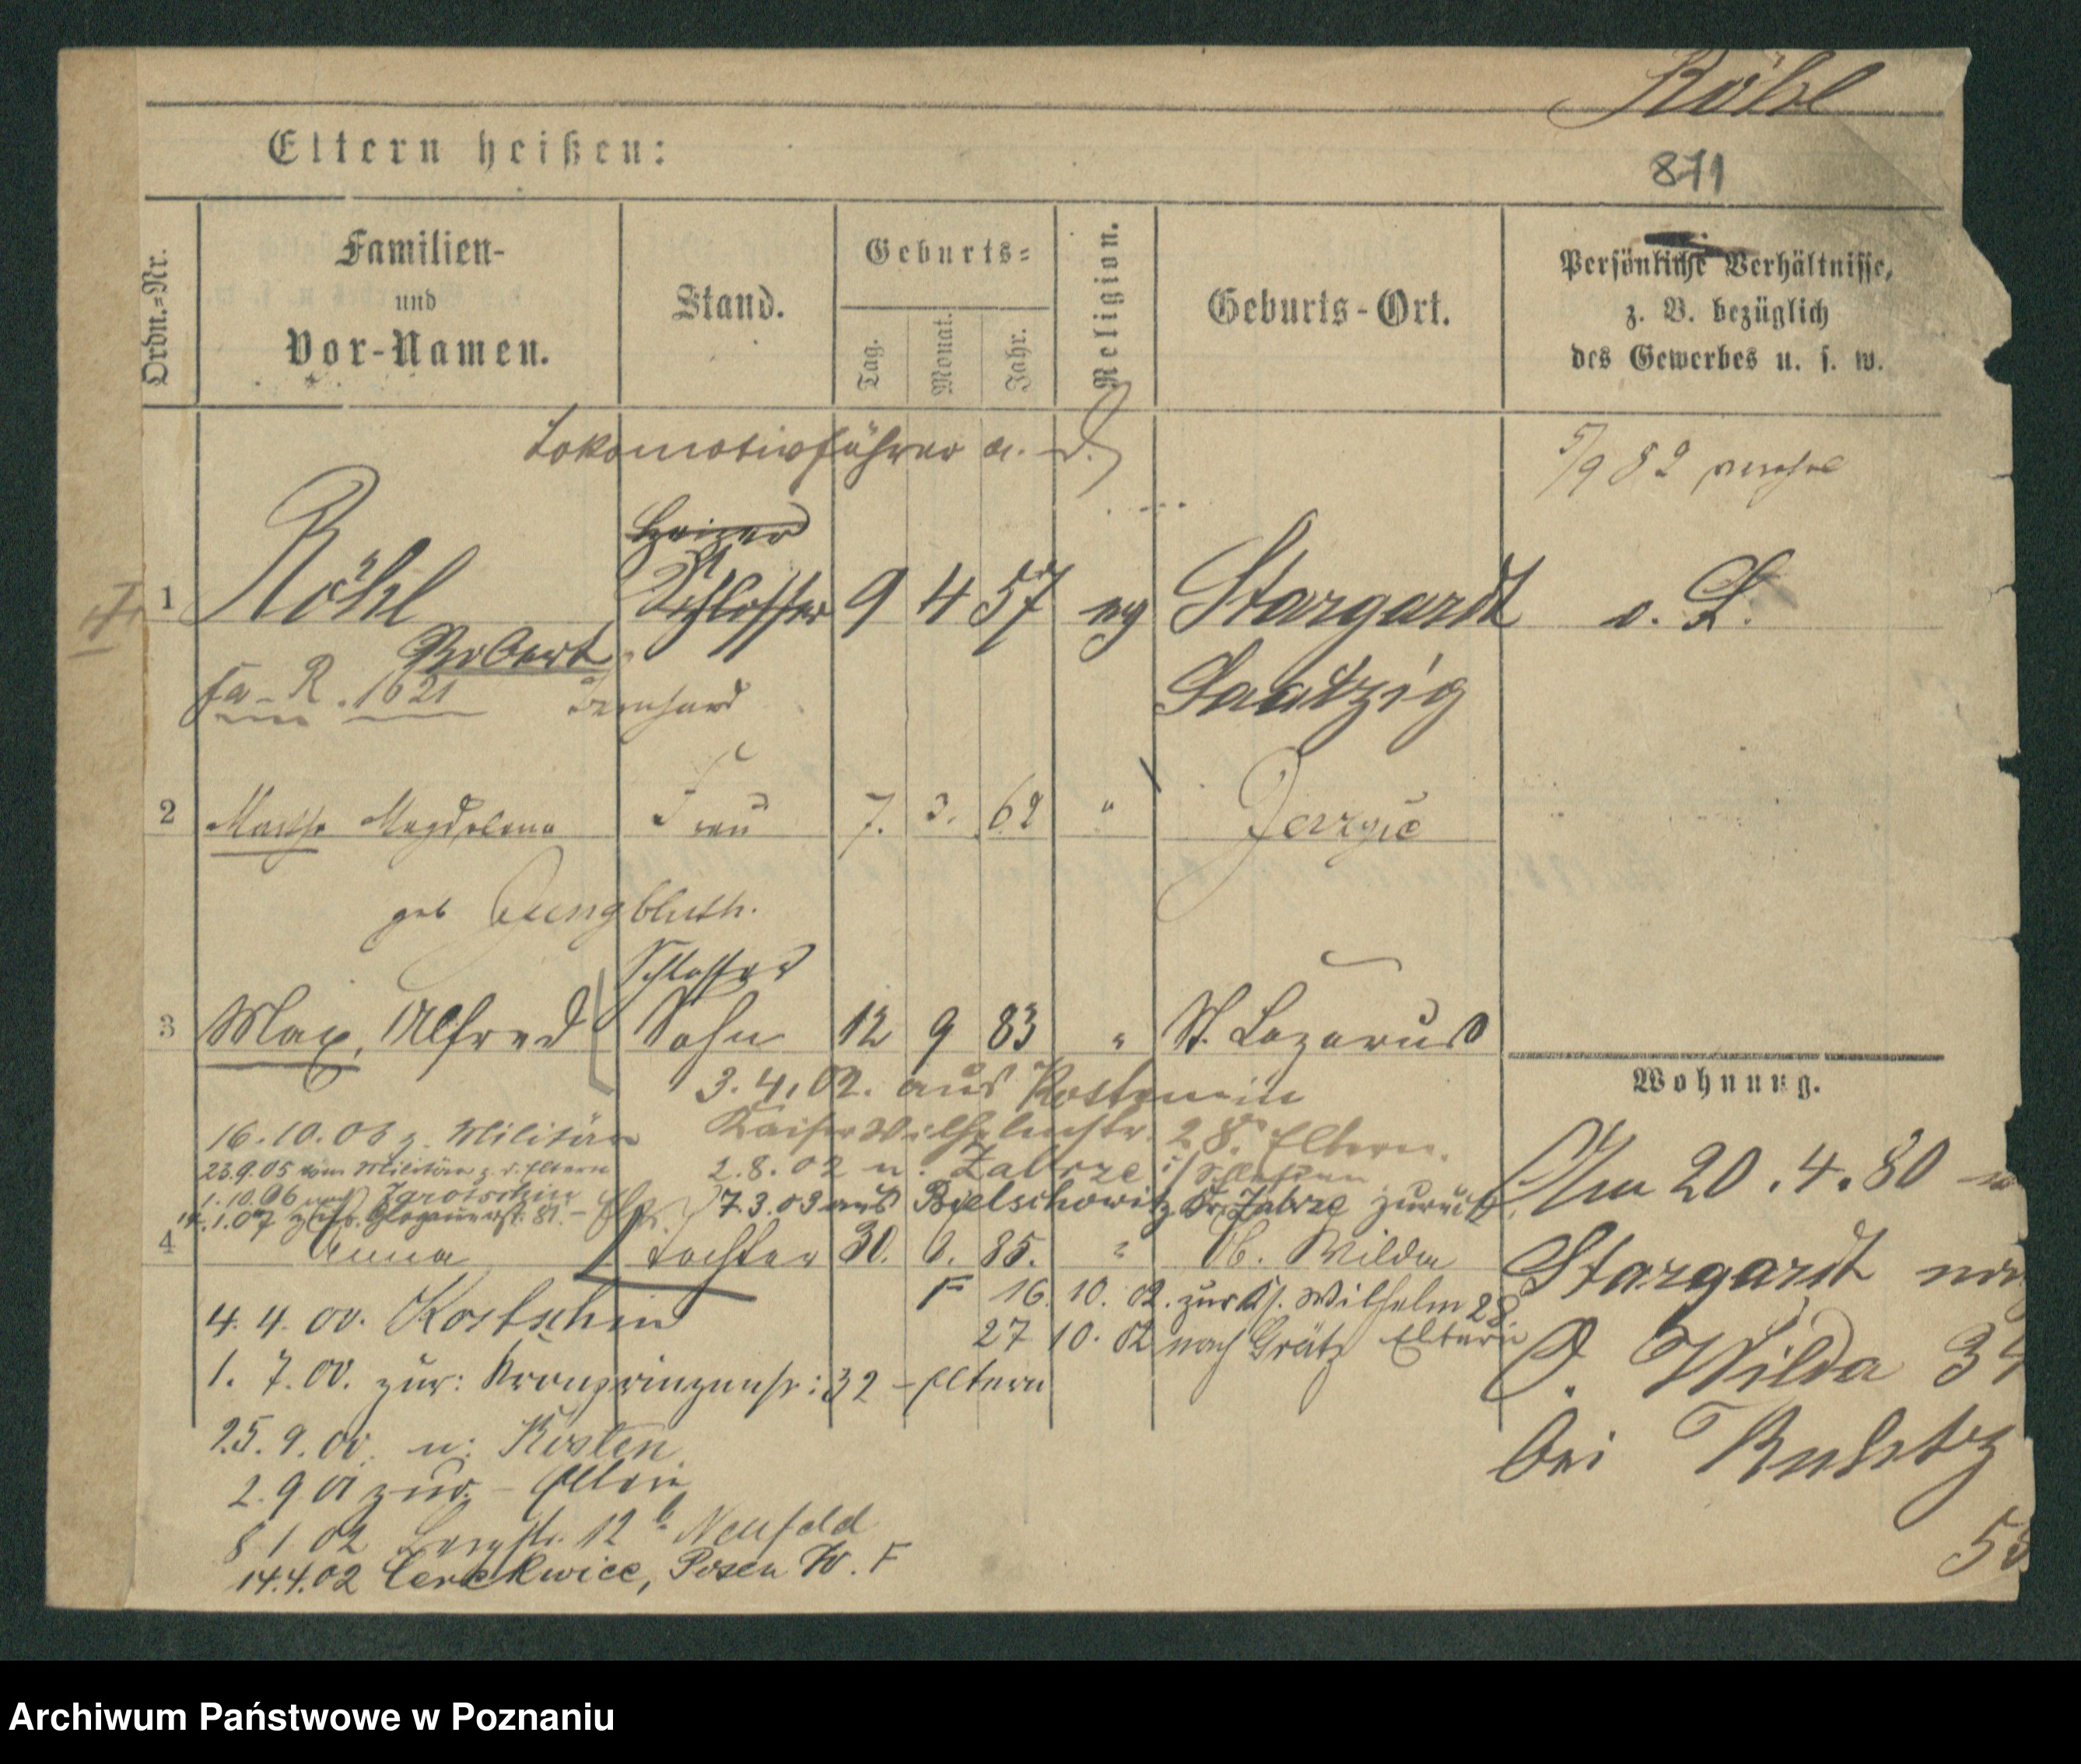 Röhl
Eltern heißen:
871
Ordn.=Nr.
Familien-
und
Vor-Namen.
Stand.
Geburts=
Tag.
Monat.
Jahr.
Religion.
Geburts-Ort.
Persönliche Verhältnisse,
z. B. bezüglich
des Gewerbes u. s. w.
Lokomotivführer a. D.
5/9 82
Heizer
1 Röhl Schlosser 9 4 57 ev Stargardt o. L.
Robert
fa - R. 1621 Bernhard
Saatzig
2 Martha Magdalena Frau 7. 3. 62 "
geb Jungbluth.
Schlosser
3 Max, Alfred Sohn 12 9 83 " St. Lazarus
3.4.02. aus Kostschin
Wohnung.
16.10.03 z. Militär Kaiser Wilhelmstr. 28. Eltern.
23.9.05 vom Militär z. d. Eltern 2.8.02 n. Zabrze i/Schlesien
1.10.06 nach Jarotschin
7.3.03 aus Bielschowitz Kr. Zabrze zurück
1.07 Glogauerstr. 81.
Am 20.4.80
4 Anna Tochter 30. 8. 85. " Ob. Wilda
Stargardt
F 16. 10. 02. zur Ks. Wilhelm 28
4.4.00. Kostschin
27 10. 02 nach Grätz Eltern
O. Wilda
1. 7.00. zur: Kronprinzenstr: 32 - Eltern
bei
25.9.00. n: Kosten
2.9.01 zur. - Eltern
8 1 02 Bergstr. 12 b Neufeld
14.4.02 Cerekwice, Posen W. F
Archiwum Państwowe w Poznaniu